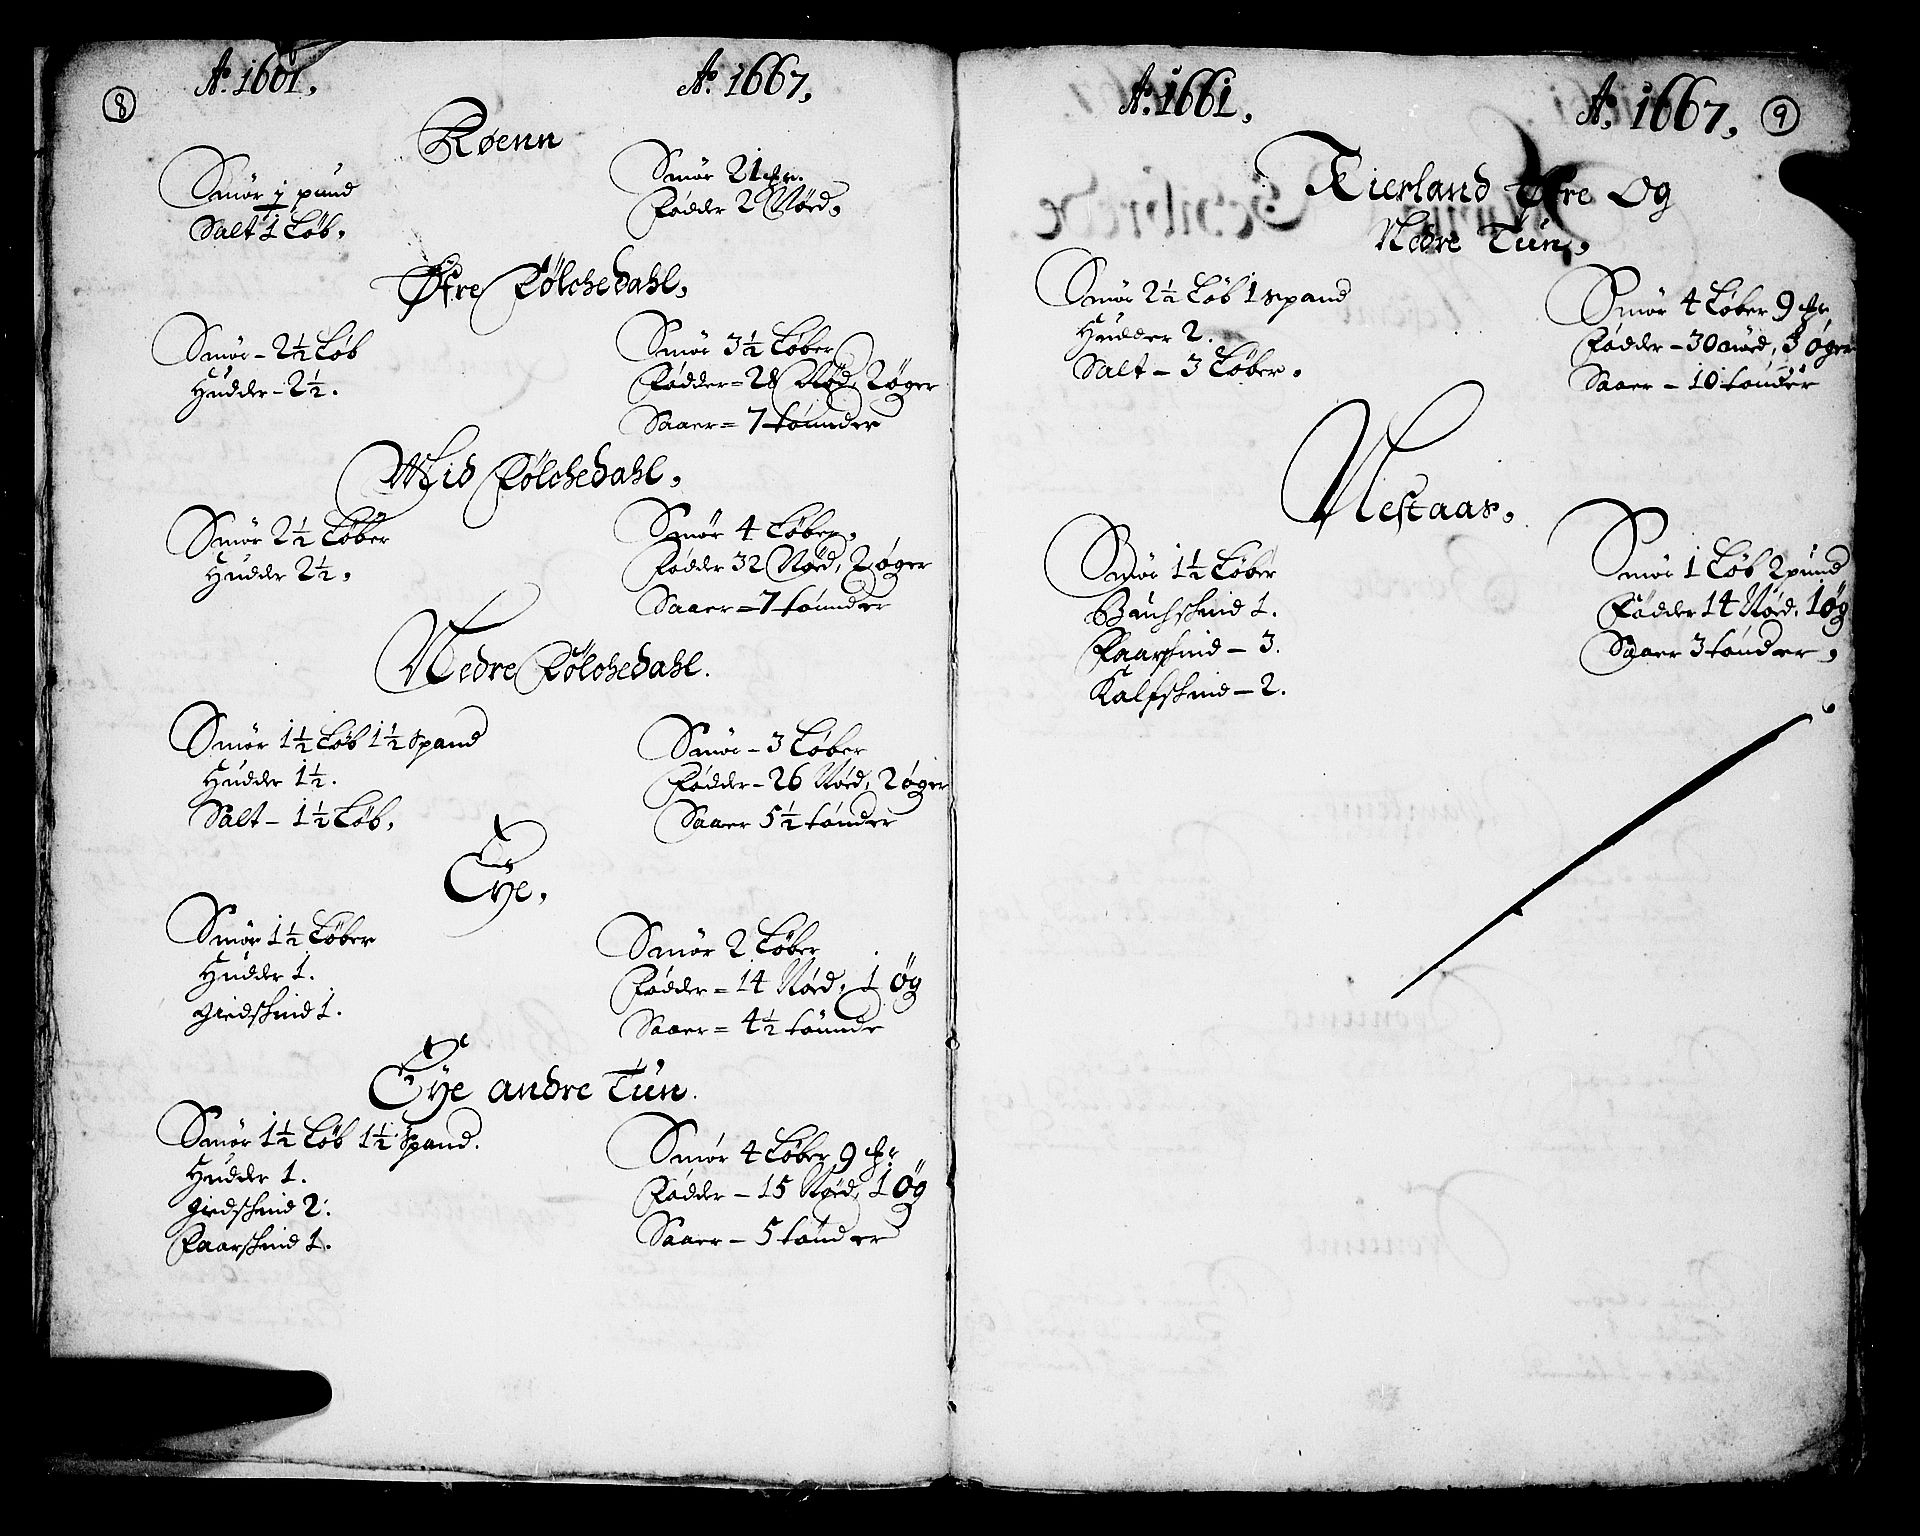 8
A.o 1661,
A.o 1667,
Røenn
Smör j pund
Salt 1 Løb,
Smör 21 fr.
Födder 2 Nörd,
Øfre Fölchedahl,
Smör - 2½ Løb
Hudder - 2½.
Smör 3½ Løber
Födder = 28 Nöd, 2 øger
Saaer = 7 tønnder
Mid Fölchedahl,
Smör 2½ Løber
Hudder 2½,
Smör 4 Løber,
Födder 32 Nörd, 2 øger
Saaer = 7 tønnder
Nedre Fölchedahl.
Smör 1½ Løb 1½ Spand
Hudder 1½.
Salt - 1½ Løb,
Smör - 3 Løber
Födder - 26 Nörd, 2 øger
Saaer 5½ tønder
Eÿe,
Smör 1½ Løber
Hudder 1.
Giedschind 1.
Smör 2 Løber
Födder = 14 Nörd, 1 øg
Saaer = 4½ tønnde
Eÿe andre Tún.
Smör 1½ Løb 1½ Spand.
Hudder 1.
Giedschind 2.
Faarschind 1.
Smör 4 Løber 9 fr
Födder - 15 Nörd, 1 Øg
Saaer - 5 tønder
A.o 1661,
A.o 1667,
9
Kierland Øfre og
Nedre Tún,
Smör 2½ Løb 1 spand
Hudder 2.
Salt - 3 Løber,
Smör 4 Løber 9 fr
Födder - 30 Nörd, 3 øger
Saaer - 10 tønder
Nestaas,
Smör 1½ Løber
Buchschind 1.
Faarschind - 3.
Kalfschind - 2.
Smör 1 Løb 2 pund
Födder 14 Nörd, 1 øg
Saaer 3 tønder,